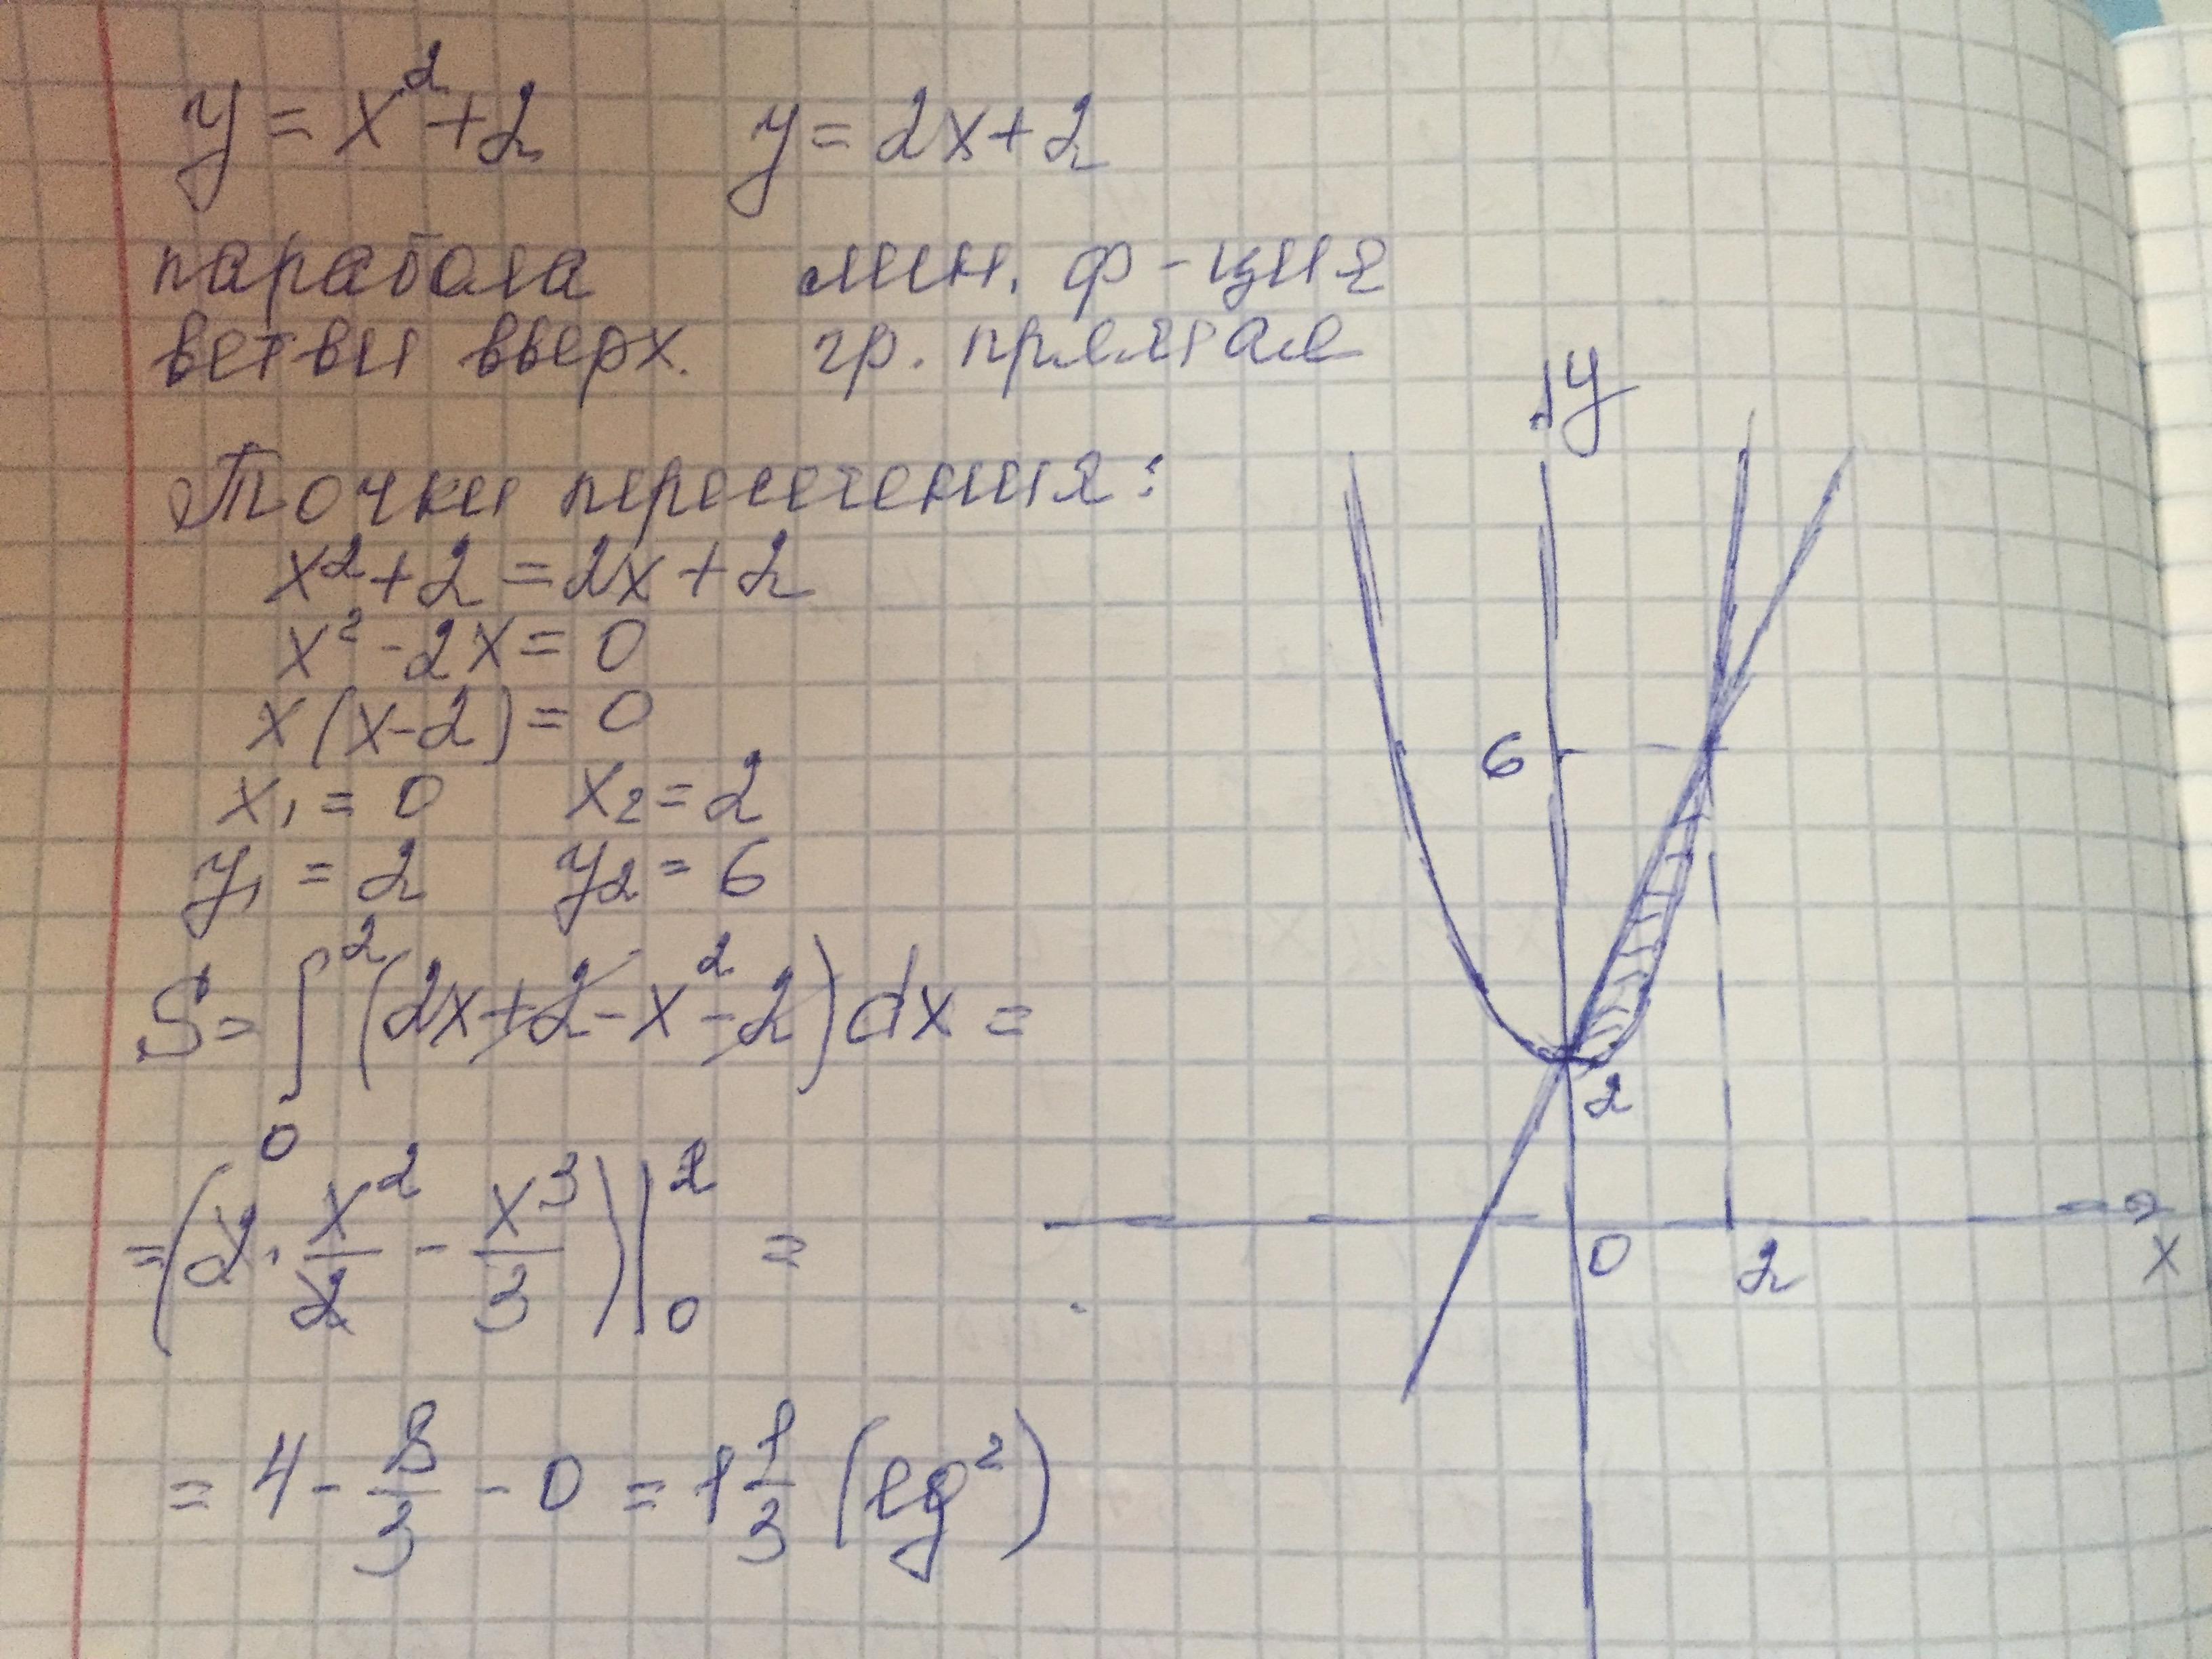 y = x² + 2    y = 2x + 2
парабола    лин. ф-ция
ветви вверх.    гр. прямая
Точки пересечения:
x² + 2 = 2x + 2
x² - 2x = 0
x(x-2) = 0
x₁ = 0    x₂ = 2
y₁ = 2    y₂ = 6
S = ∫₀² (2x + 2 - x² - 2) dx =
= (2 · x²/2 - x³/3) |₀² =
= 4 - 8/3 - 0 = 1 1/3 (ед²)
y
6
2
0    2    x